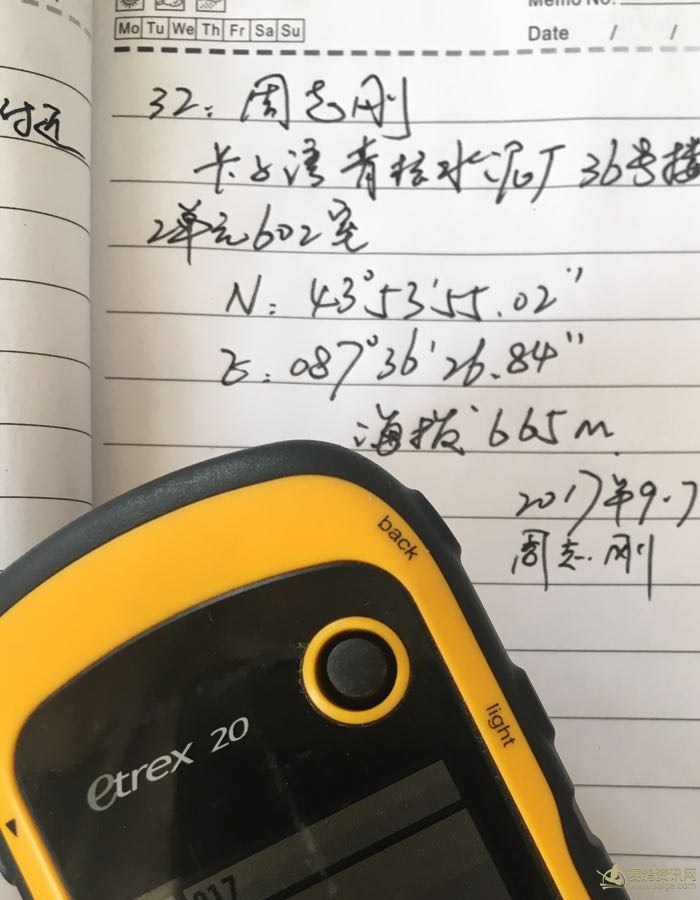 Memo No.
Mo Tu We Th Fr Sa Su
Date / /
付近
32: 周志刚
卡子湾青松水泥厂36号楼
2单元602室
N: 43°53'55.02"
E: 087°36'26.84"
海拔 665m
2017年9.7
周志刚
back
light
etrex 20
017
赛鸽资讯网
www.saige.com